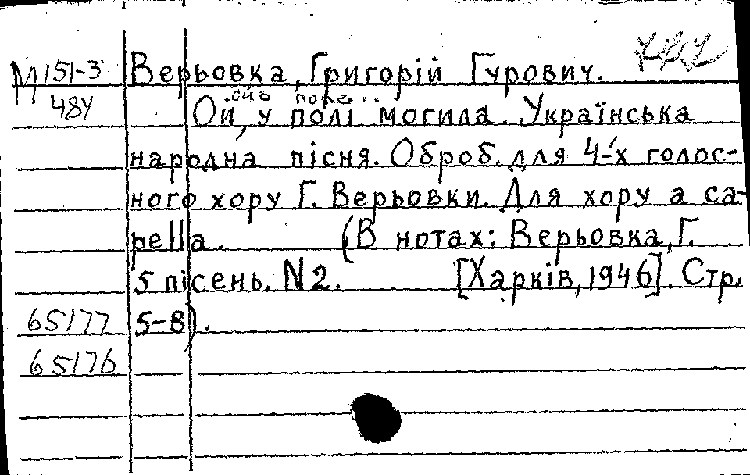 М151-3 Верьовка, Григорій Гурович.
484 Ой, у полі могила. Українська
народна пісня. Оброб. для 4-х голос-
ного хору Г. Верьовки. Для хору a ca-
pella. (В нотах: Верьовка, Г.
5 пісень. N2. [Харків, 1946]. Стр.
65177 5-8).
65176